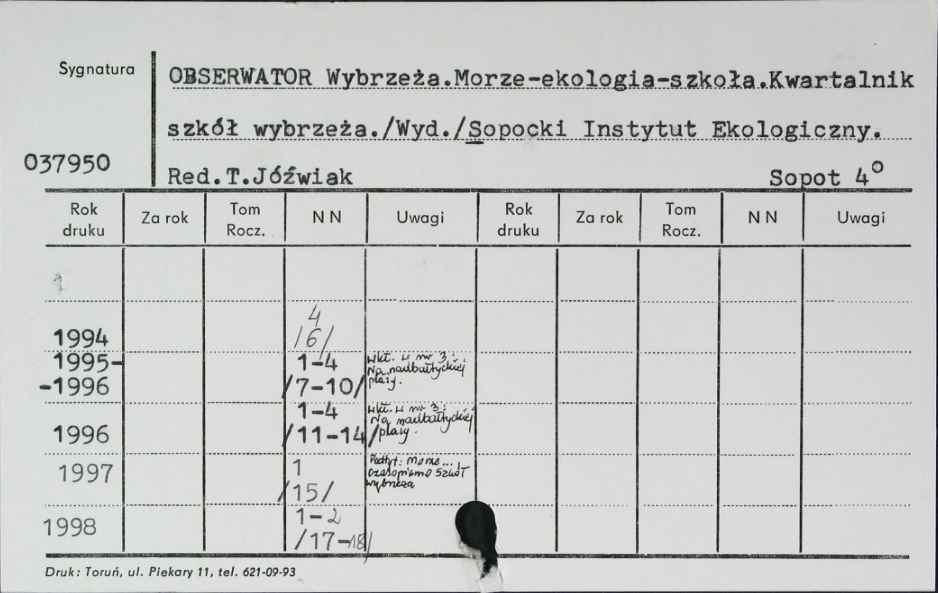 Sygnatura
OBSERWATOR Wybrzeża.Morze-ekologia-szkoła.Kwartalnik
szkół wybrzeża./Wyd./Sopocki Instytut Ekologiczny.
037950
Red.T.Jóźwiak Sopot 4°
Rok druku Za rok Tom Rocz. N N Uwagi Rok druku Za rok Tom Rocz. N N Uwagi
1
4
1994 /6/
1995- 1-4 wkł. w nr 3:
Na nadbałtyckiej
-1996 /7-10/ plaży.
1-4 wkł. w nr 3:
Na nadbałtyckiej
1996 /11-14/ plaży.
1997 1 Podtyt: Morze...,
czasopismo szkół
/15/ wybrzeża
1998 1-2
/17-18/
Druk: Toruń, ul. Piekary 11, tel. 621-09-93